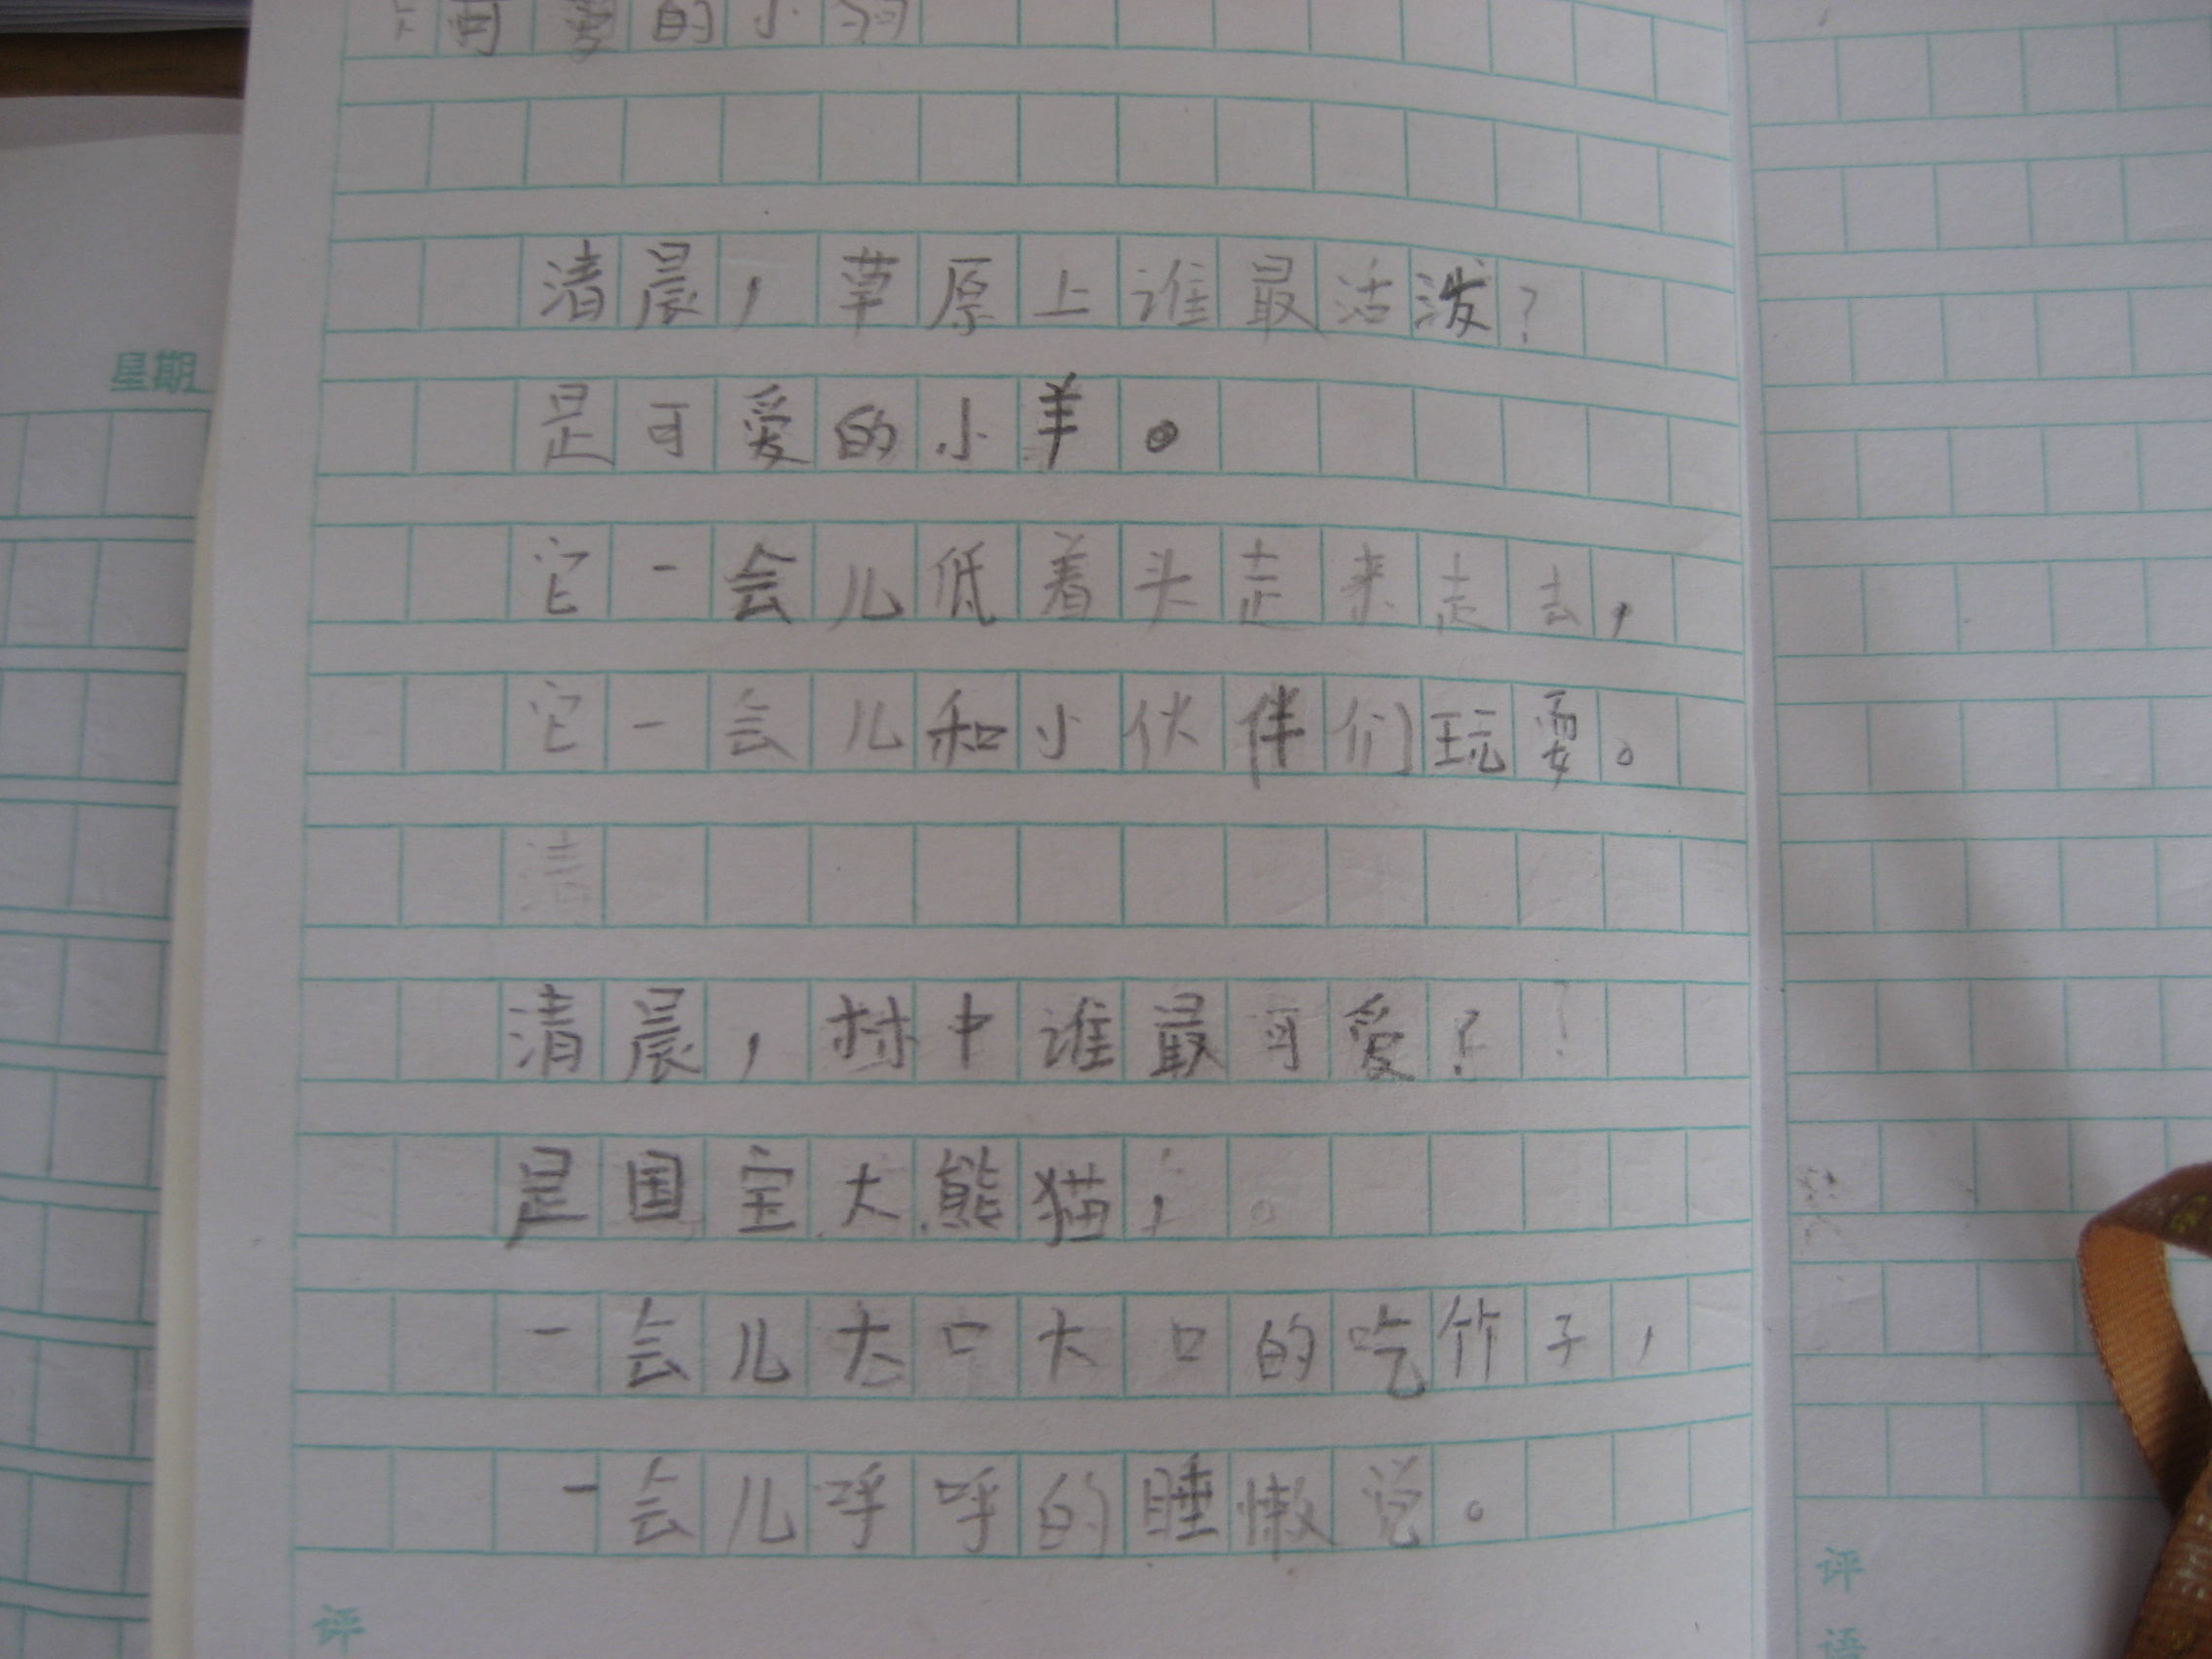 可爱的小
清晨，草原上谁最活泼？
是可爱的小羊。
它一会儿低着头走来走去，
它一会儿和小伙伴们玩耍。
清
清晨，林中谁最可爱？
是国宝大熊猫，
一会儿大口大口的吃竹子，
一会儿呼呼的睡懒觉。
星期
评
评
语